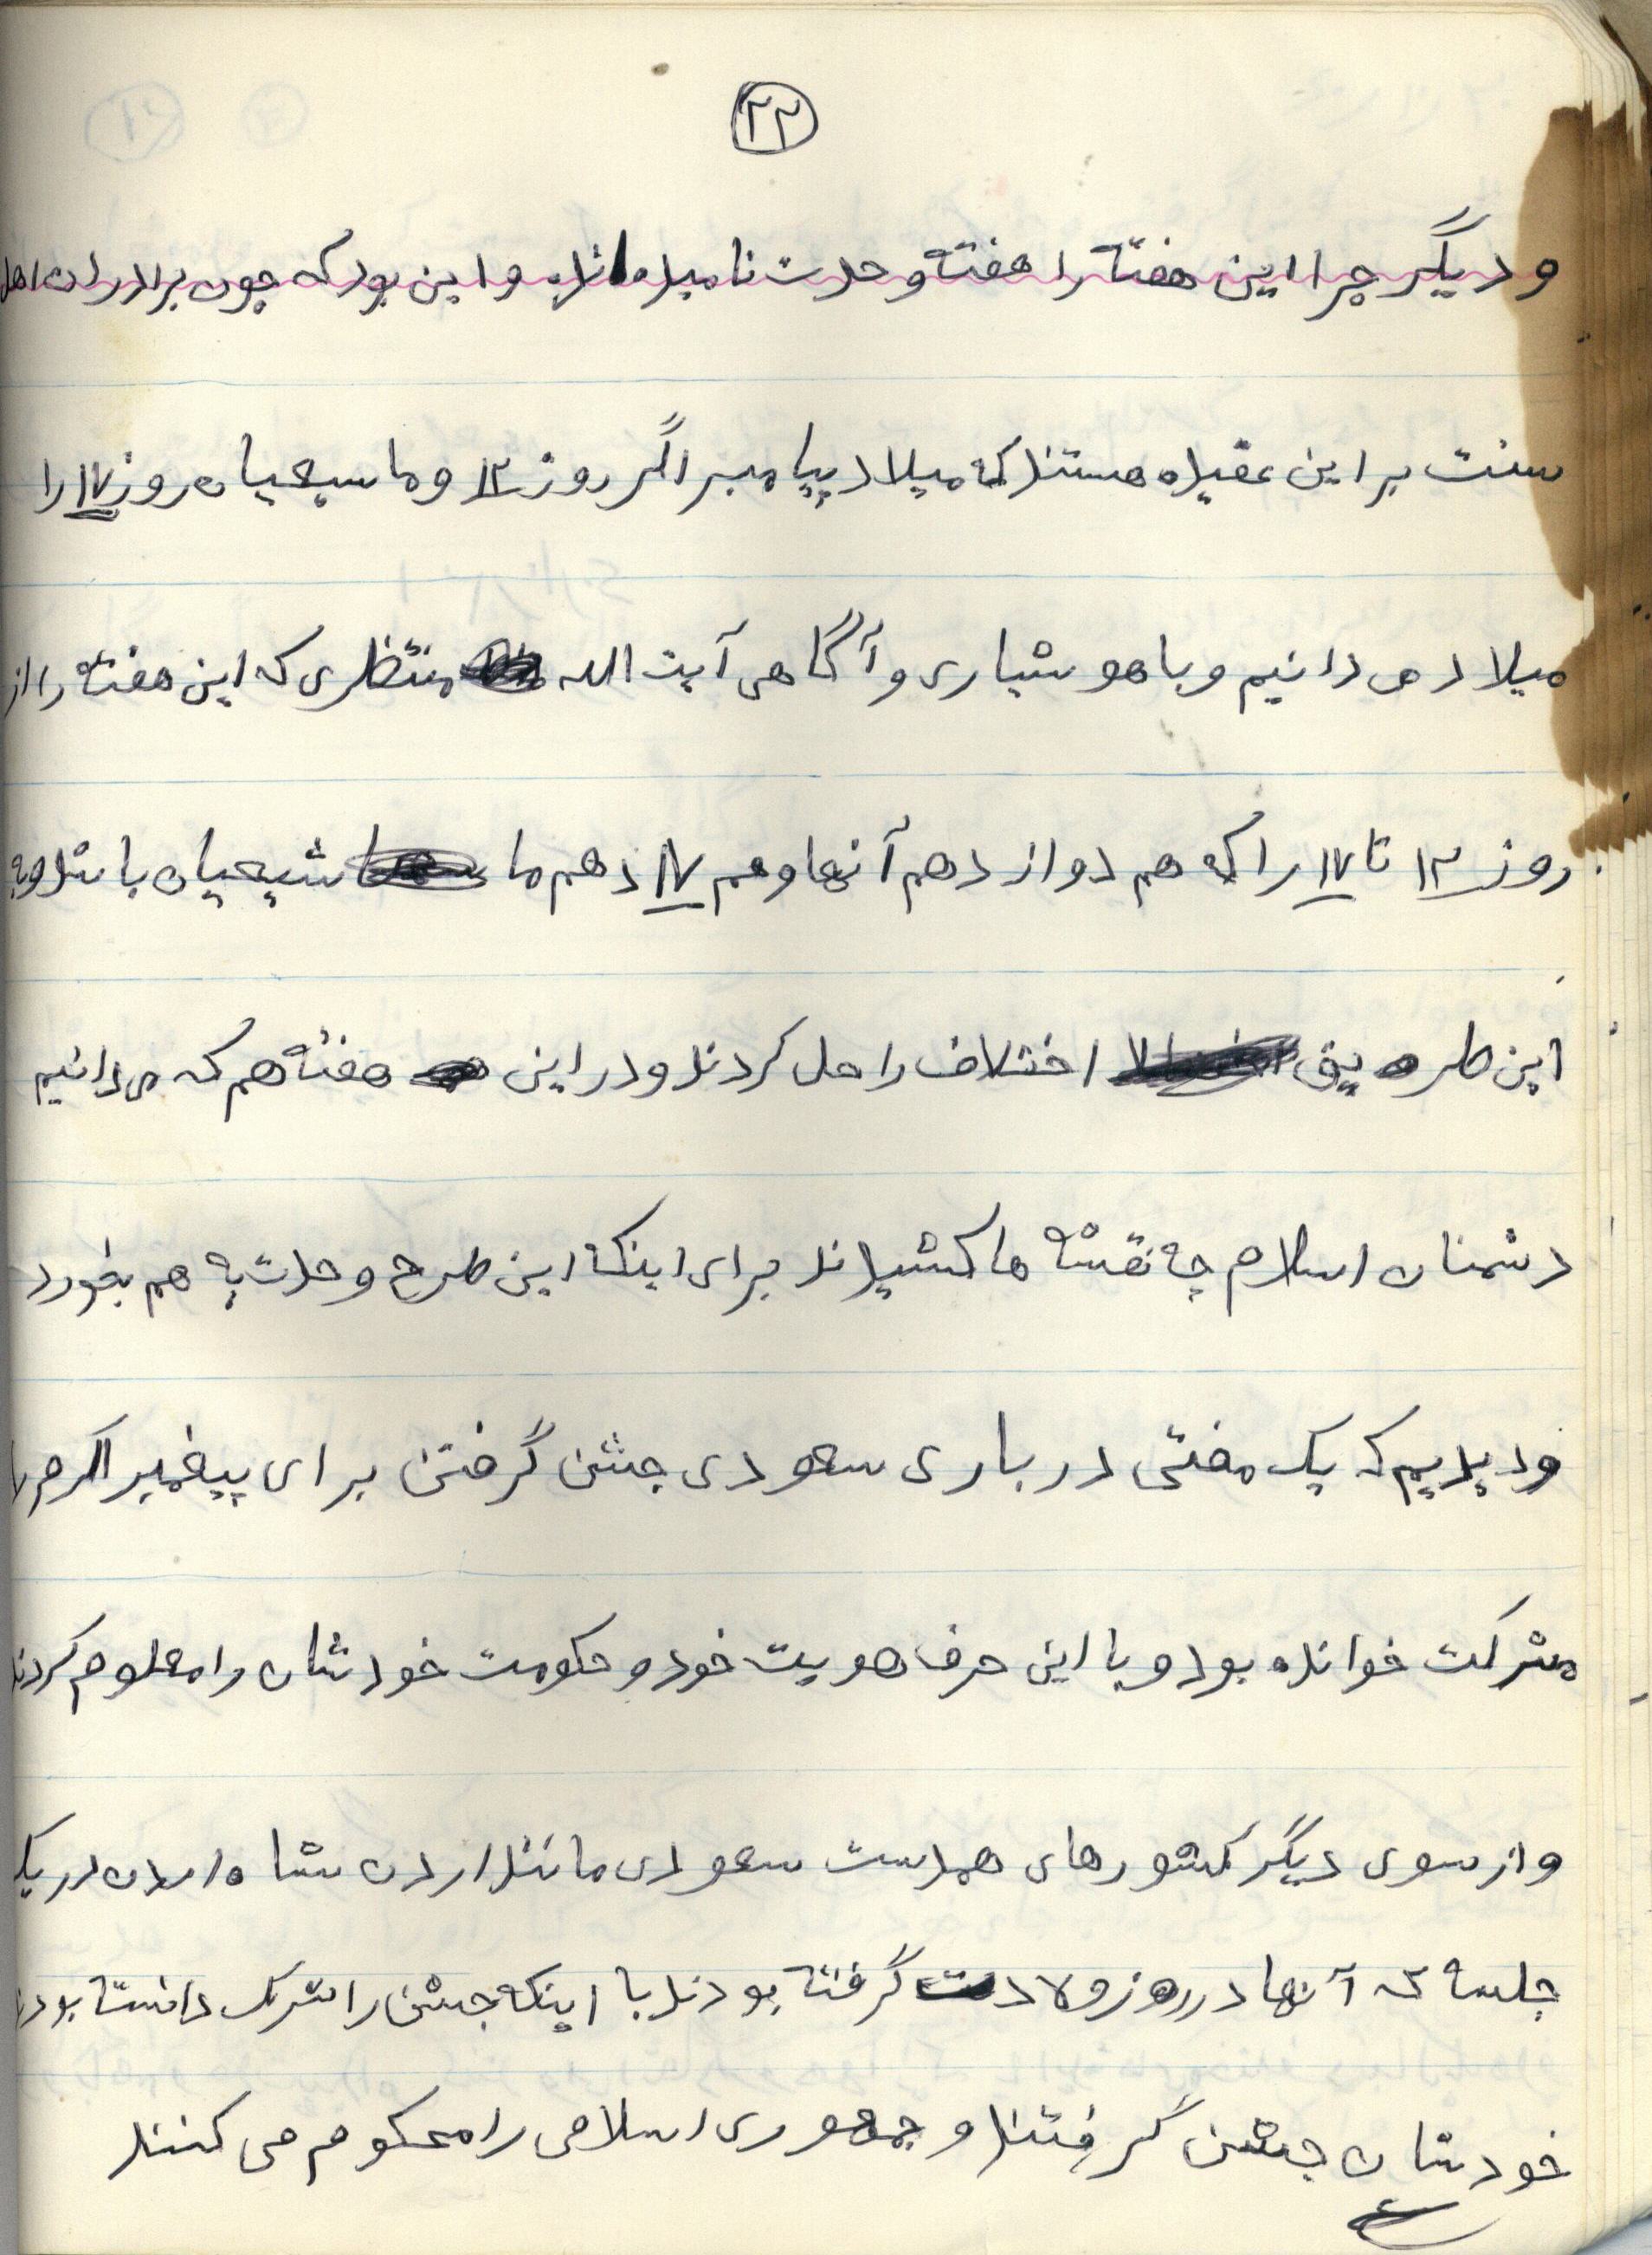 ۲۲
و دیگر چرا این هفته را هفته وحدت نامیده اند. و این بود که چون برادران اهل
سنت بر این عقیده هستند که میلاد پیامبر اگر روز ۱۲ و ما سیعیان روز ۱۷ را
میلاد می دانیم و با هوشیاری و آگاهی آیت الله منتظری که این هفته را از
روز ۱۲ تا ۱۷ را که هم دوازدهم آنها و هم ۱۷ دهم ما شیعیان با
این طریق اختلاف را حل کردند و در این هفته هم که می دانیم
دشمنان اسلام چه نقشه ها کشیدند برای اینکه این طرح وحدت به هم بخورد
و دیدیم که یک مفتی درباری سعودی جشن گرفتن برای پیغمبر اکرم را
مشرکت خوانده بود و با این حرف هویت خود و حکومت خودشان را معلوم کردند
و از سوی دیگر کشورهای همدست سعودی مانند اردن شاه اردن در یک
جلسه که آنها در روز ولادت گرفته بودند با اینکه جشن را شرک دانسته بودند
خودشان جشن گرفتند و جمهوری اسلامی را محکوم می کنند